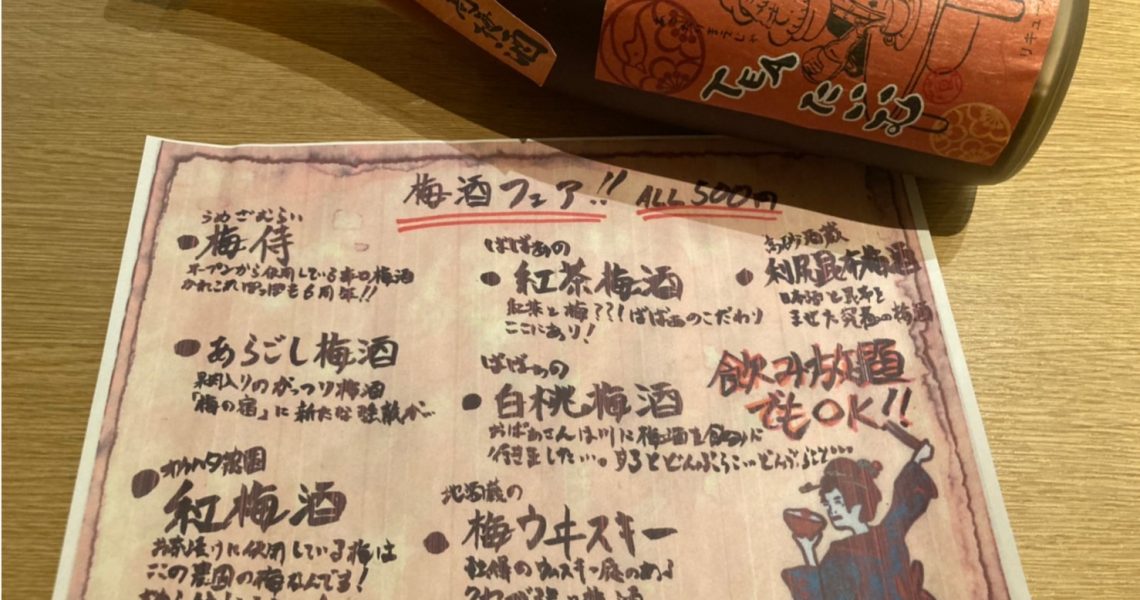 リキュー
TEA
たいむ
梅酒フェア!! ALL 500円
うめざむらい
●梅侍
オープンから使用している辛口梅酒
かれこれぽっぽも6周年!!
●あらごし梅酒
果肉入りのがっつり梅酒
「梅の宿」に新たな強敵が
オカハタ農園
●紅梅酒
お茶漬けに使用している梅は
この農園の梅なんです!
ばばぁの
●紅茶梅酒
紅茶と梅???ばばぁのこだわり
ここにあり!
ばばぁの
●白桃梅酒
おばあさんは川に梅酒を飲みに
行きました…。するとどんぶらこ…どんぶらこ…
地酒蔵の
●梅ウヰスキー
自慢のウイスキー感のある
高砂酒蔵
●利尻昆布梅酒
日本酒と昆布と
まぜた究極の梅酒
飲み放題
でもOK!!